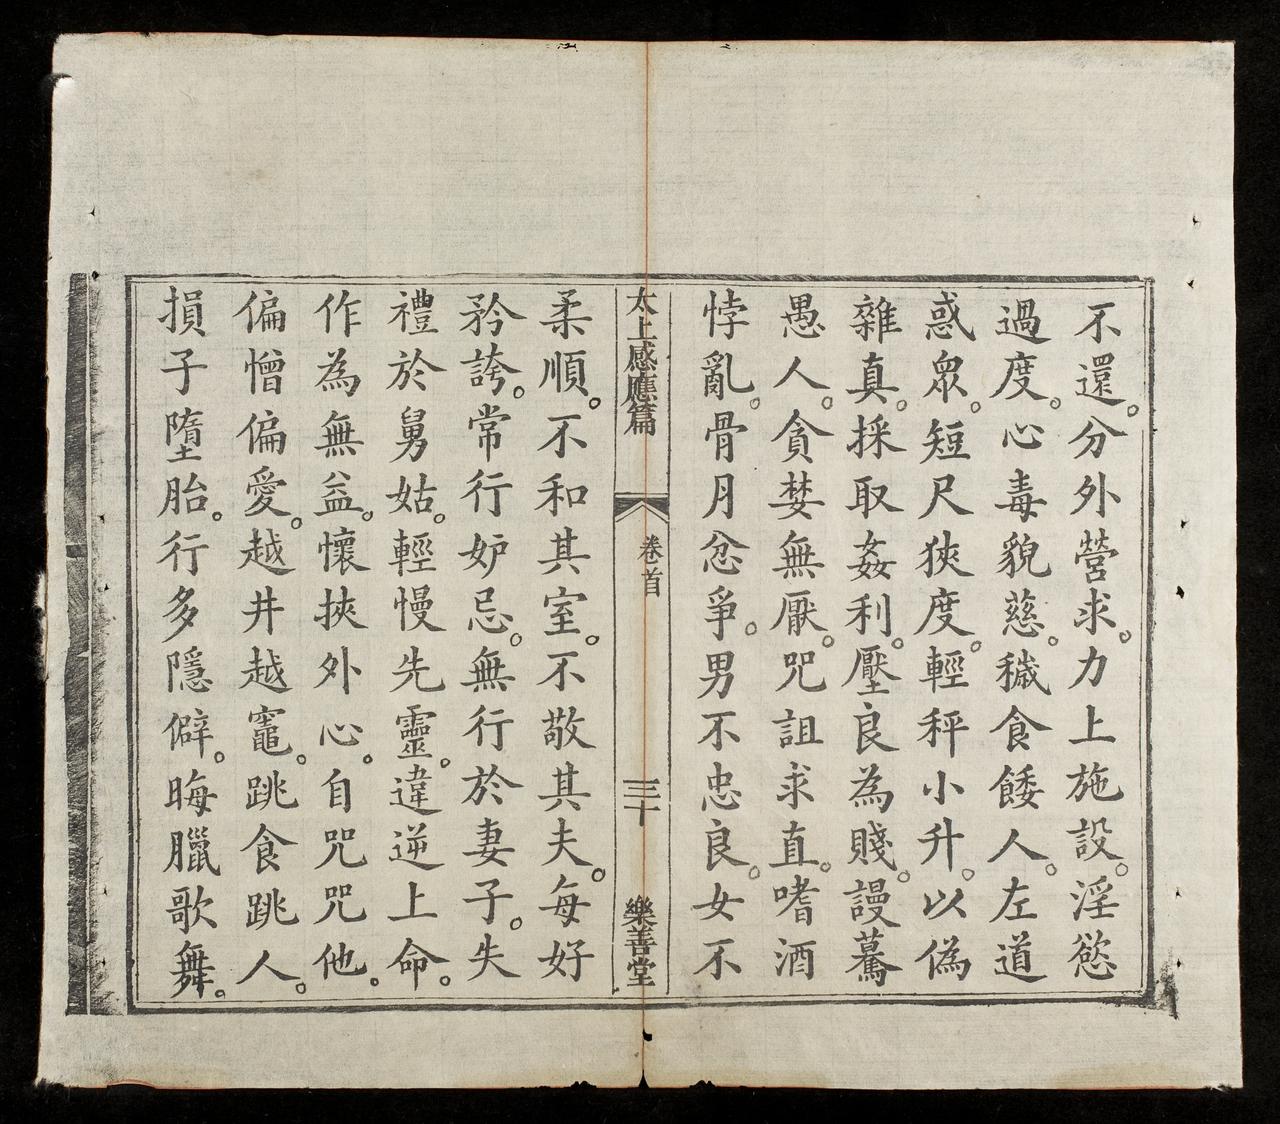 不還。分外營求。力上施設。淫慾
過度。心毒貌慈。穢食餧人。左道
惑衆。短尺狹度。輕秤小升。以偽
雜真。採取姦利。壓良為賤。謾驀
愚人。貪婪無厭。咒詛求直。嗜酒
悖亂。骨月忿爭。男不忠良。女不
太上感應篇 卷首 三十 樂善堂
柔順。不和其室。不敬其夫。每好
矜誇。常行妒忌。無行於妻子。失
禮於舅姑。輕慢先靈。違逆上命。
作為無益。懷挾外心。自咒咒他。
偏憎偏愛。越井越竈。跳食跳人。
損子墮胎。行多隱僻。晦臘歌舞。